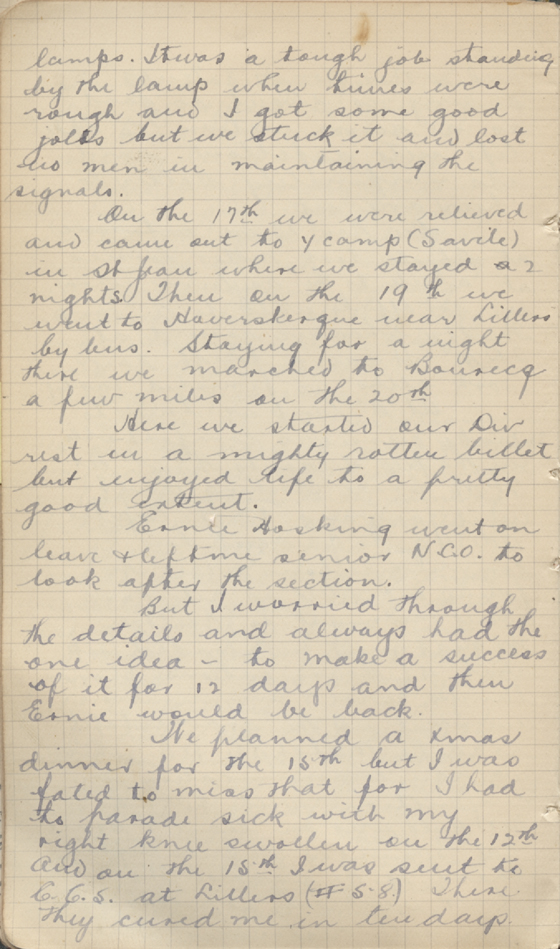 lamps. It was a tough job standing
by the lamp when times were
rough and I got some good
jolts but we stuck it and lost
no men in maintaining the
signals.
On the 17th we were relieved
and came out to Y camp (Savile)
in St Jean where we stayed 2
nights. Then on the 19th we
went to Haverskerque near Lillers
by bus. Staying for a night
there we marched to Bourecq
a few miles on the 20th
Here we started our Div
rest in a mighty rotten billet
but enjoyed life to a pretty
good extent.
Ernie Hosking went on
leave & left me senior N.C.O. to
look after the section.
But I worried through
the details and always had the
one idea - to make a success
of it for 12 days and then
Ernie would be back.
We planned a Xmas
dinner for the 15th but I was
fated to miss that for I had
to parade sick with my
right knee swollen on the 12th
And on the 15th I was sent to
C.C.S. at Lillers (# 58) There
they cured me in ten days.